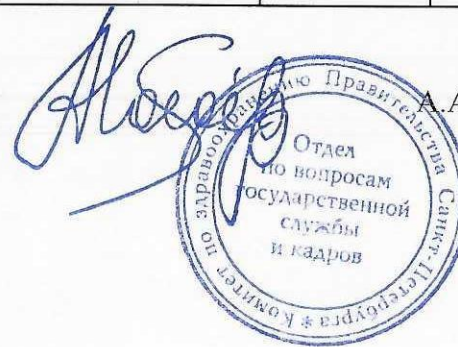 А.А
Комитет по здравоохранению Правительства Санкт-Петербурга *
Отдел
по вопросам
государственной
службы
и кадров